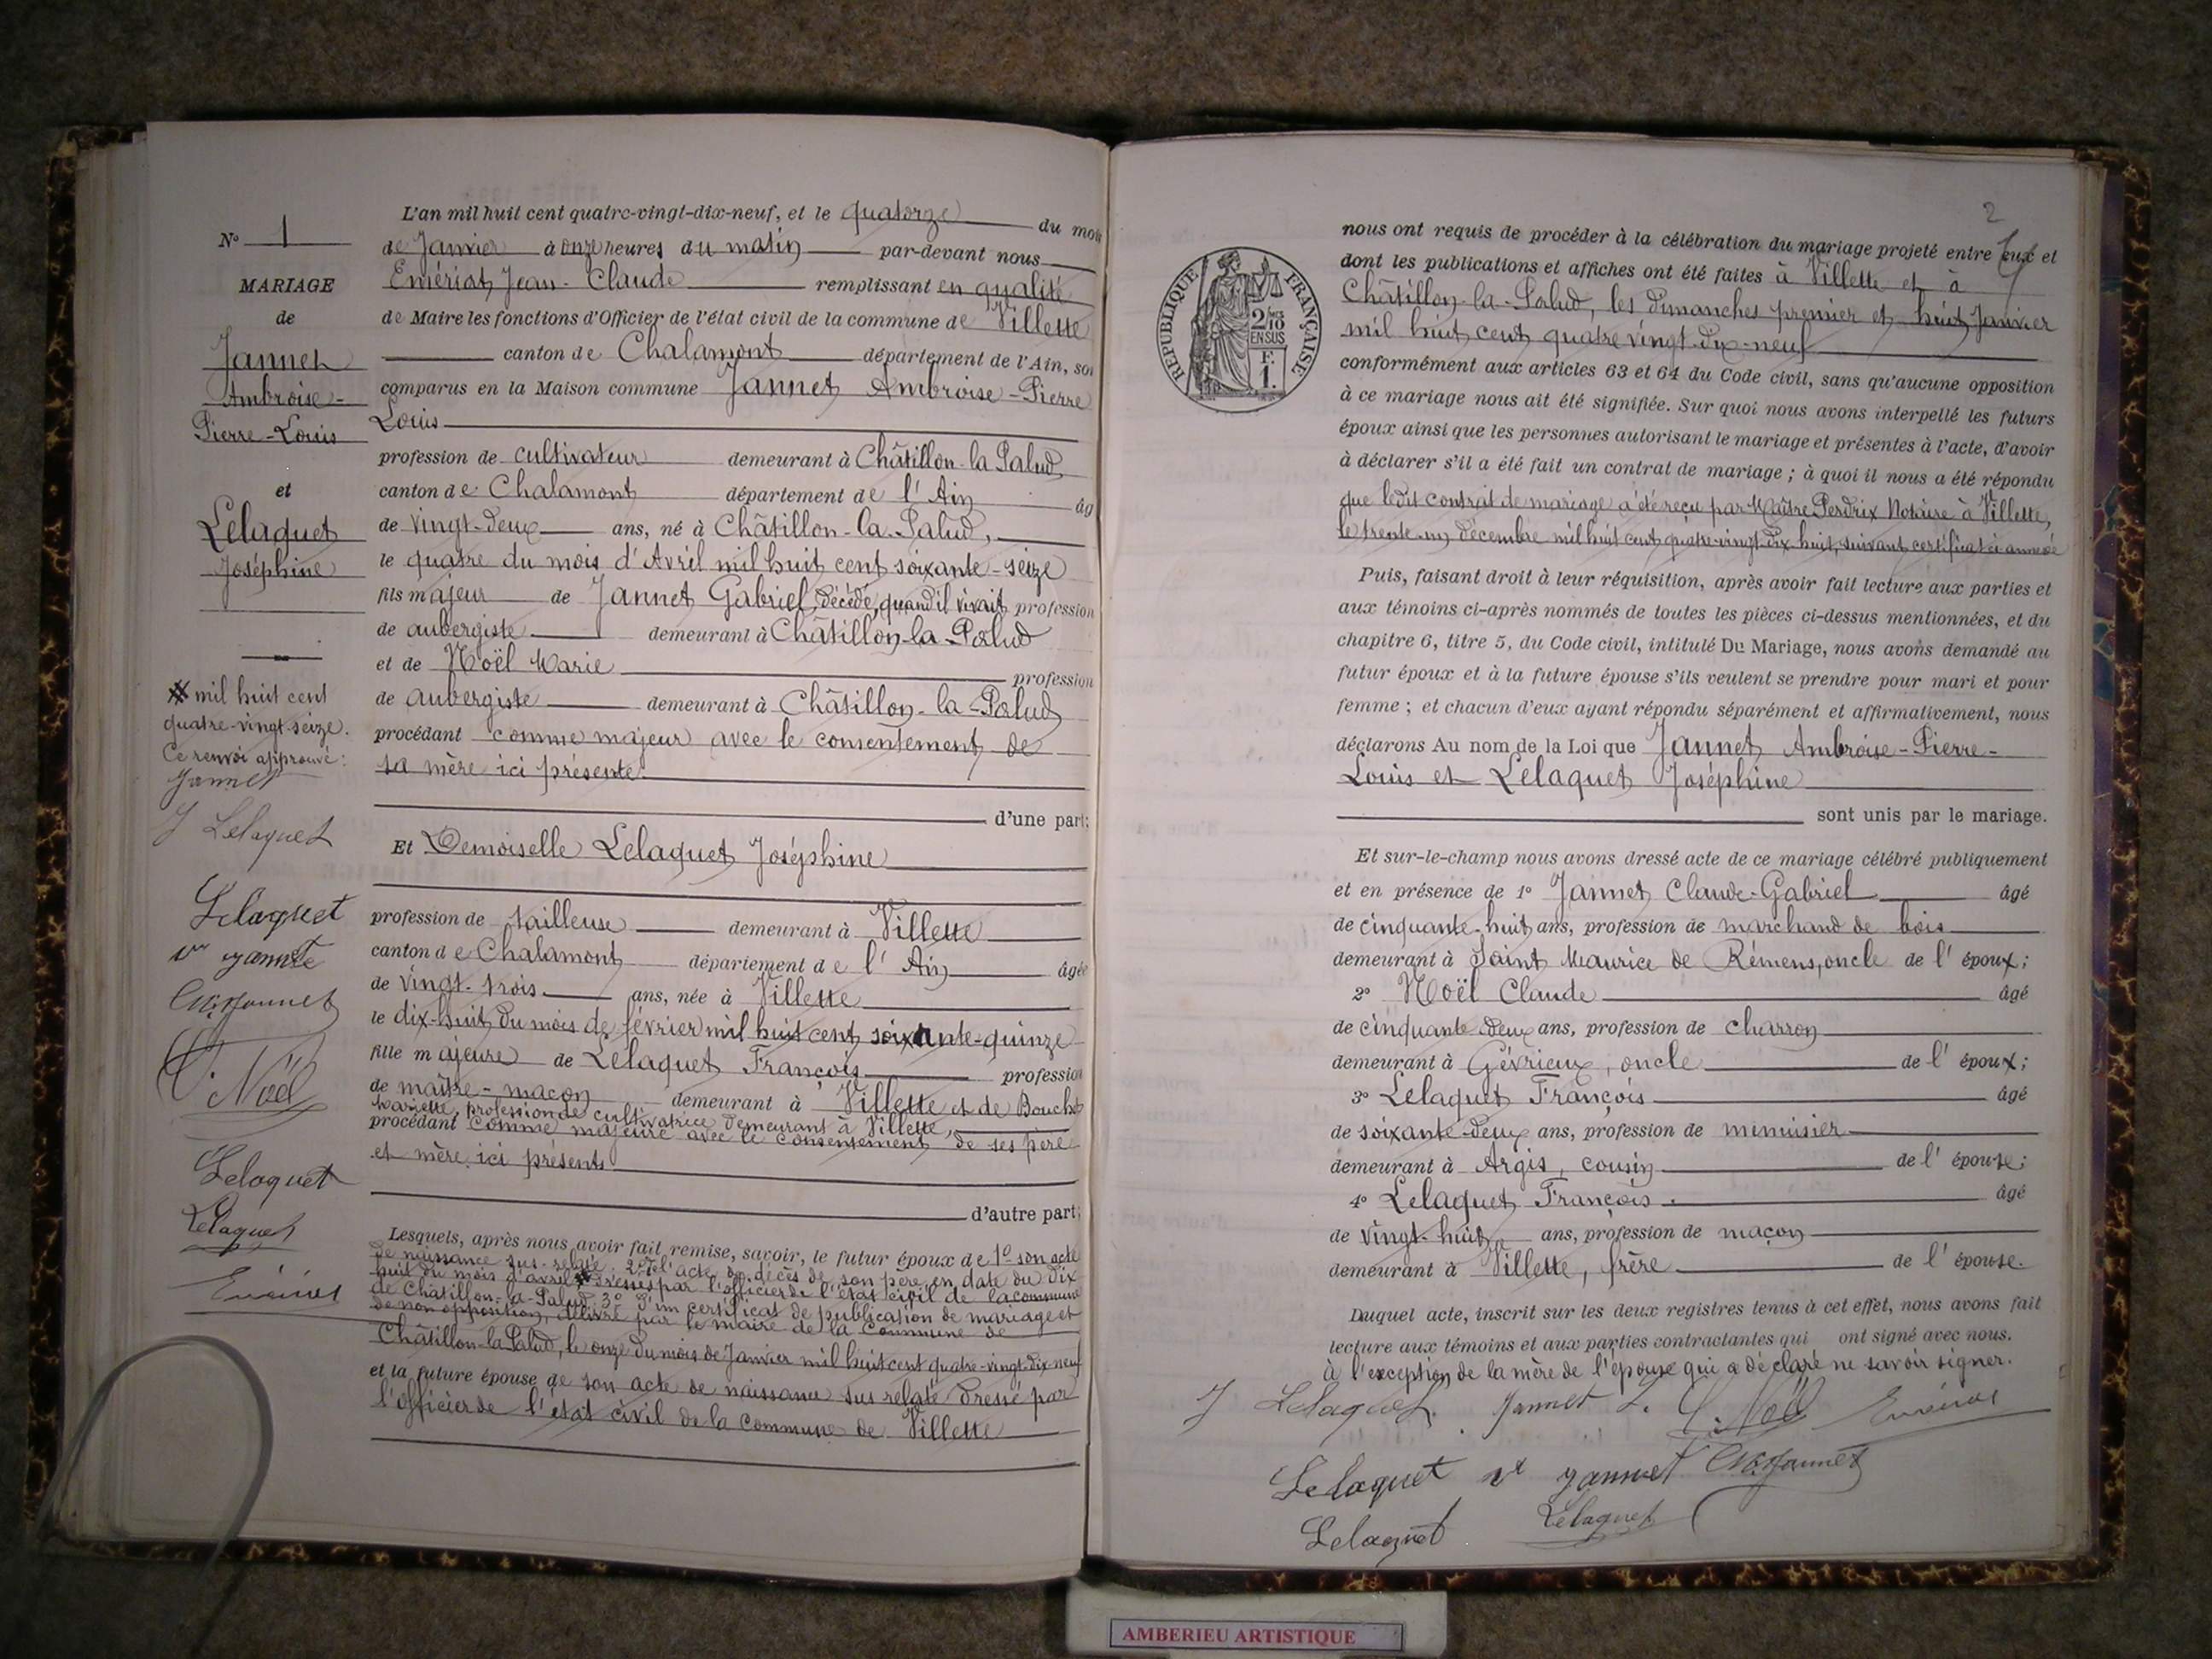 N° 1
MARIAGE
de
Jannet
Ambroise-
Pierre-Louis
et
Lelaquet
Joséphine
mil huit cent
quatre-vingt-seize.
Ce renvoi approuvé:
Jannet
J Lelaquet
Lelaquet
Vve jannet
Jannet
C. Noël
Lelaquet
Lelaquet
L'an mil huit cent quatre-vingt-dix-neuf, et le quatorze du mois
de Janvier à onze heures du matin par-devant nous
Emériat Jean-Claude remplissant en qualité
de Maire les fonctions d'Officier de l'état civil de la commune de Villette
canton de Chalamont département de l'Ain, son
comparus en la Maison commune Jannet Ambroise-Pierre
Louis
profession de cultivateur demeurant à Châtillon-la Palud
canton de Chalamont département de l'Ain âg
de vingt-deux ans, né à Châtillon-la-Palud,
le quatre du mois d'Avril mil huit cent soixante-seize
fils majeur de Jannet Gabriel, décédé, quand il vivait profession
de aubergiste demeurant à Châtillon-la-Palud
et de Noël Marie profession
de aubergiste demeurant à Châtillon-la-Palud
procédant comme majeur avec le consentement de
sa mère ici présente.
d'une part;
Et Demoiselle Lelaquet Joséphine
profession de tailleuse demeurant à Villette
canton de Chalamont département de l'Ain âgée
de vingt-trois ans, née à Villette
le dix-huit du mois de février mil huit cent soixante-quinze
fille majeure de Lelaquet François profession
de maître-maçon demeurant à Villette et de Bouchet
Mariette, profession de cultivatrice demeurant à Villette,
procédant comme majeure avec le consentement de ses père
et mère ici présents
d'autre part;
Lesquels, après nous avoir fait remise, savoir, le futur époux de 1° son acte
de naissance sus-relaté. 2° de l'acte de décès de son père, en date du dix
huit du mois d'avril dressés par l'officier de l'état civil de la commune
de Châtillon-la-Palud. 3° d'un certificat de publication de mariage et
de non opposition, délivré par le maire de la Commune de
Châtillon-la Palud, le onze du mois de Janvier mil huit cent quatre-vingt-dix-neuf
et la future épouse de son acte de naissance sus relaté dressé par
l'officier de l'état civil de la commune de Villette
2
RÉPUBLIQUE FRANÇAISE
2/10
EN SUS
F.
1.
nous ont requis de procéder à la célébration du mariage projeté entre eux et
dont les publications et affiches ont été faites à Villette et à
Châtillon-la-Palud, les dimanches premier et huit Janvier
mil huit cent quatre vingt-dix-neuf
conformément aux articles 63 et 64 du Code civil, sans qu'aucune opposition
à ce mariage nous ait été signifiée. Sur quoi nous avons interpellé les futurs
époux ainsi que les personnes autorisant le mariage et présentes à l'acte, d'avoir
à déclarer s'il a été fait un contrat de mariage; à quoi il nous a été répondu
que ledit contrat de mariage a été reçu par Maître Perdrix Notaire à Villette,
le trente-un décembre mil huit cent quatre-vingt-dix huit, suivant certificat ci annexé
Puis, faisant droit à leur réquisition, après avoir fait lecture aux parties et
aux témoins ci-après nommés de toutes les pièces ci-dessus mentionnées, et du
chapitre 6, titre 5, du Code civil, intitulé Du Mariage, nous avons demandé au
futur époux et à la future épouse s'ils veulent se prendre pour mari et pour
femme; et chacun d'eux ayant répondu séparément et affirmativement, nous
déclarons Au nom de la Loi que Jannet Ambroise-Pierre-
Louis et Lelaquet Joséphine
sont unis par le mariage.
Et sur-le-champ nous avons dressé acte de ce mariage célébré publiquement
et en présence de 1° Jannet Claude-Gabriel âgé
de cinquante-huit ans, profession de marchand de bois
demeurant à Saint Maurice de Rémens, oncle de l'époux;
2° Noël Claude âgé
de cinquante-deux ans, profession de charron
demeurant à Gévrieux, oncle de l'époux;
3° Lelaquet François âgé
de soixante-deux ans, profession de menuisier
demeurant à Argis, cousin de l'épouse;
4° Lelaquet François. âgé
de vingt-huit ans, profession de maçon
demeurant à Villette, frère de l'épouse.
Duquel acte, inscrit sur les deux registres tenus à cet effet, nous avons fait
lecture aux témoins et aux parties contractantes qui ont signé avec nous.
à l'exception de la mère de l'épouse qui a déclaré ne savoir signer.
J Lelaquet. Jannet L. C. Noël
Lelaquet Vve jannet Jannet
Lelaquet Lelaquet
AMBERIEU ARTISTIQUE